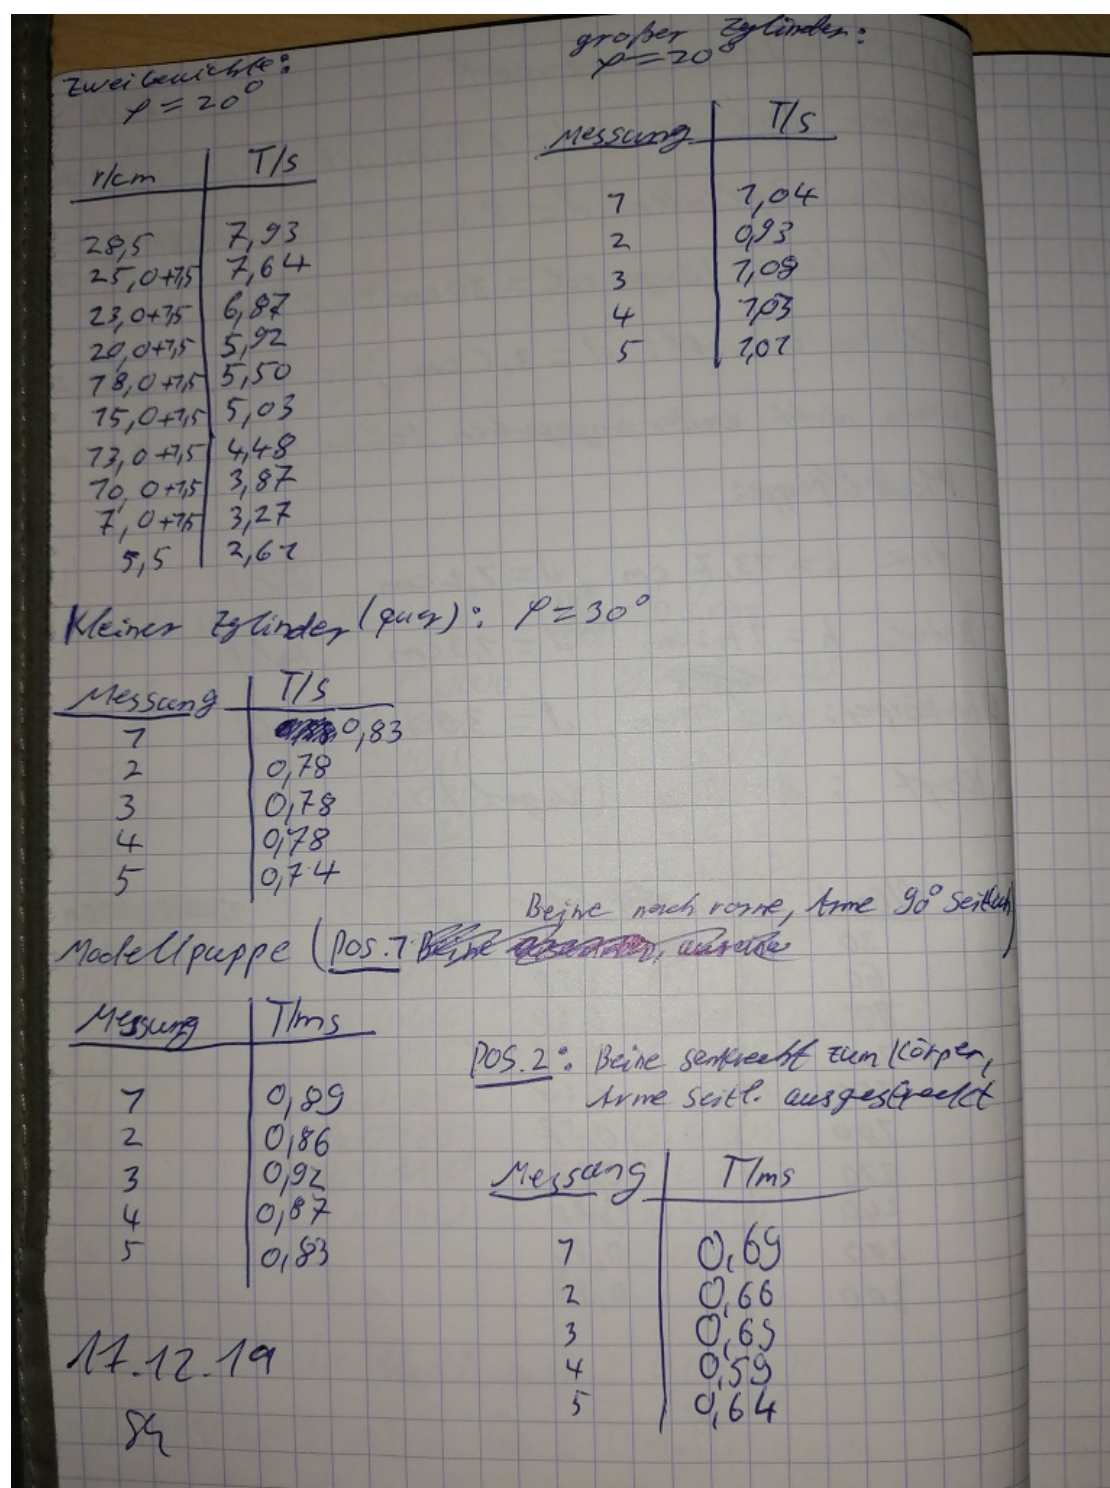 Zwei Gewichte:
φ = 20°
r/cm | T/s
28,5 | 7,93
25,0+1,5 | 7,64
23,0+1,5 | 6,87
20,0+1,5 | 5,92
18,0+1,5 | 5,50
15,0+1,5 | 5,03
13,0+1,5 | 4,48
10,0+1,5 | 3,87
7,0+1,5 | 3,27
5,5 | 2,61
großer Zylinder:
φ = 20°
Messung | T/s
1 | 1,04
2 | 0,93
3 | 1,08
4 | 1,03
5 | 1,01
Kleiner Zylinder (quer): φ = 30°
Messung | T/s
1 | 0,83
2 | 0,78
3 | 0,78
4 | 0,78
5 | 0,74
Beine nach vorne, Arme 90° seitlich)
Modellpuppe (Pos. 1
Messung | T/ms
1 | 0,89
2 | 0,86
3 | 0,92
4 | 0,87
5 | 0,83
Pos. 2: Beine senkrecht zum Körper,
Arme seitl. ausgestreckt
Messung | T/ms
1 | 0,69
2 | 0,66
3 | 0,65
4 | 0,59
5 | 0,64
17.12.19